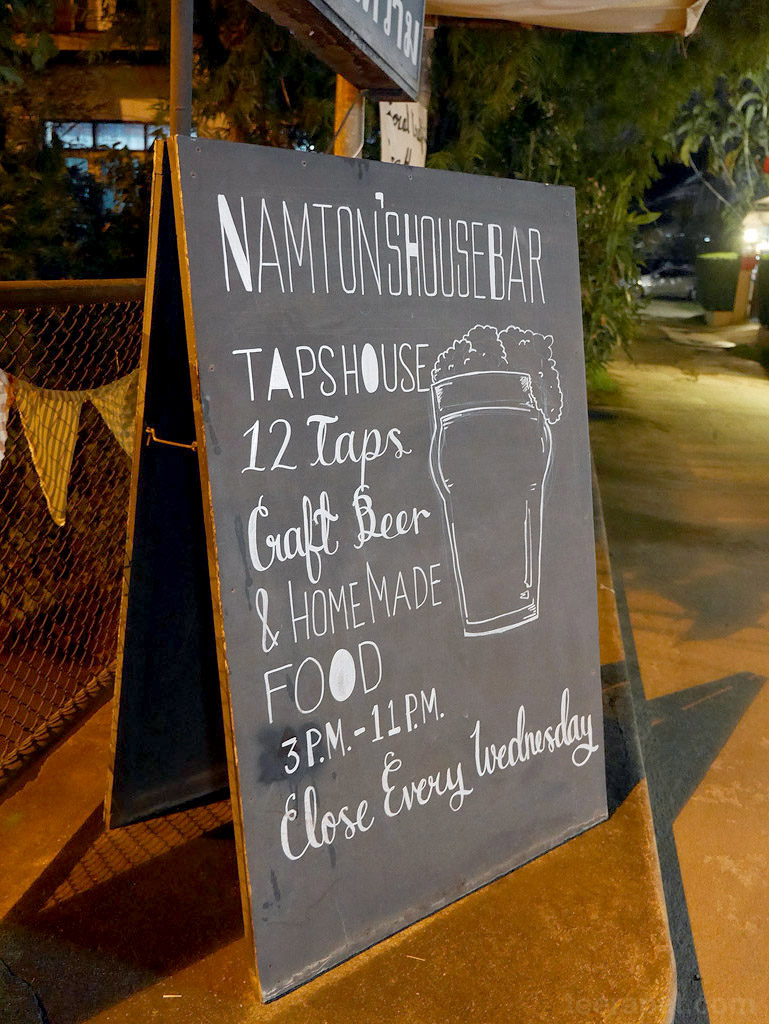 NAMTON'S HOUSE BAR
TAPS HOUSE
12 Taps
Craft Beer
& HOMEMADE
FOOD
3 P.M. - 11 P.M.
Close Every Wednesday